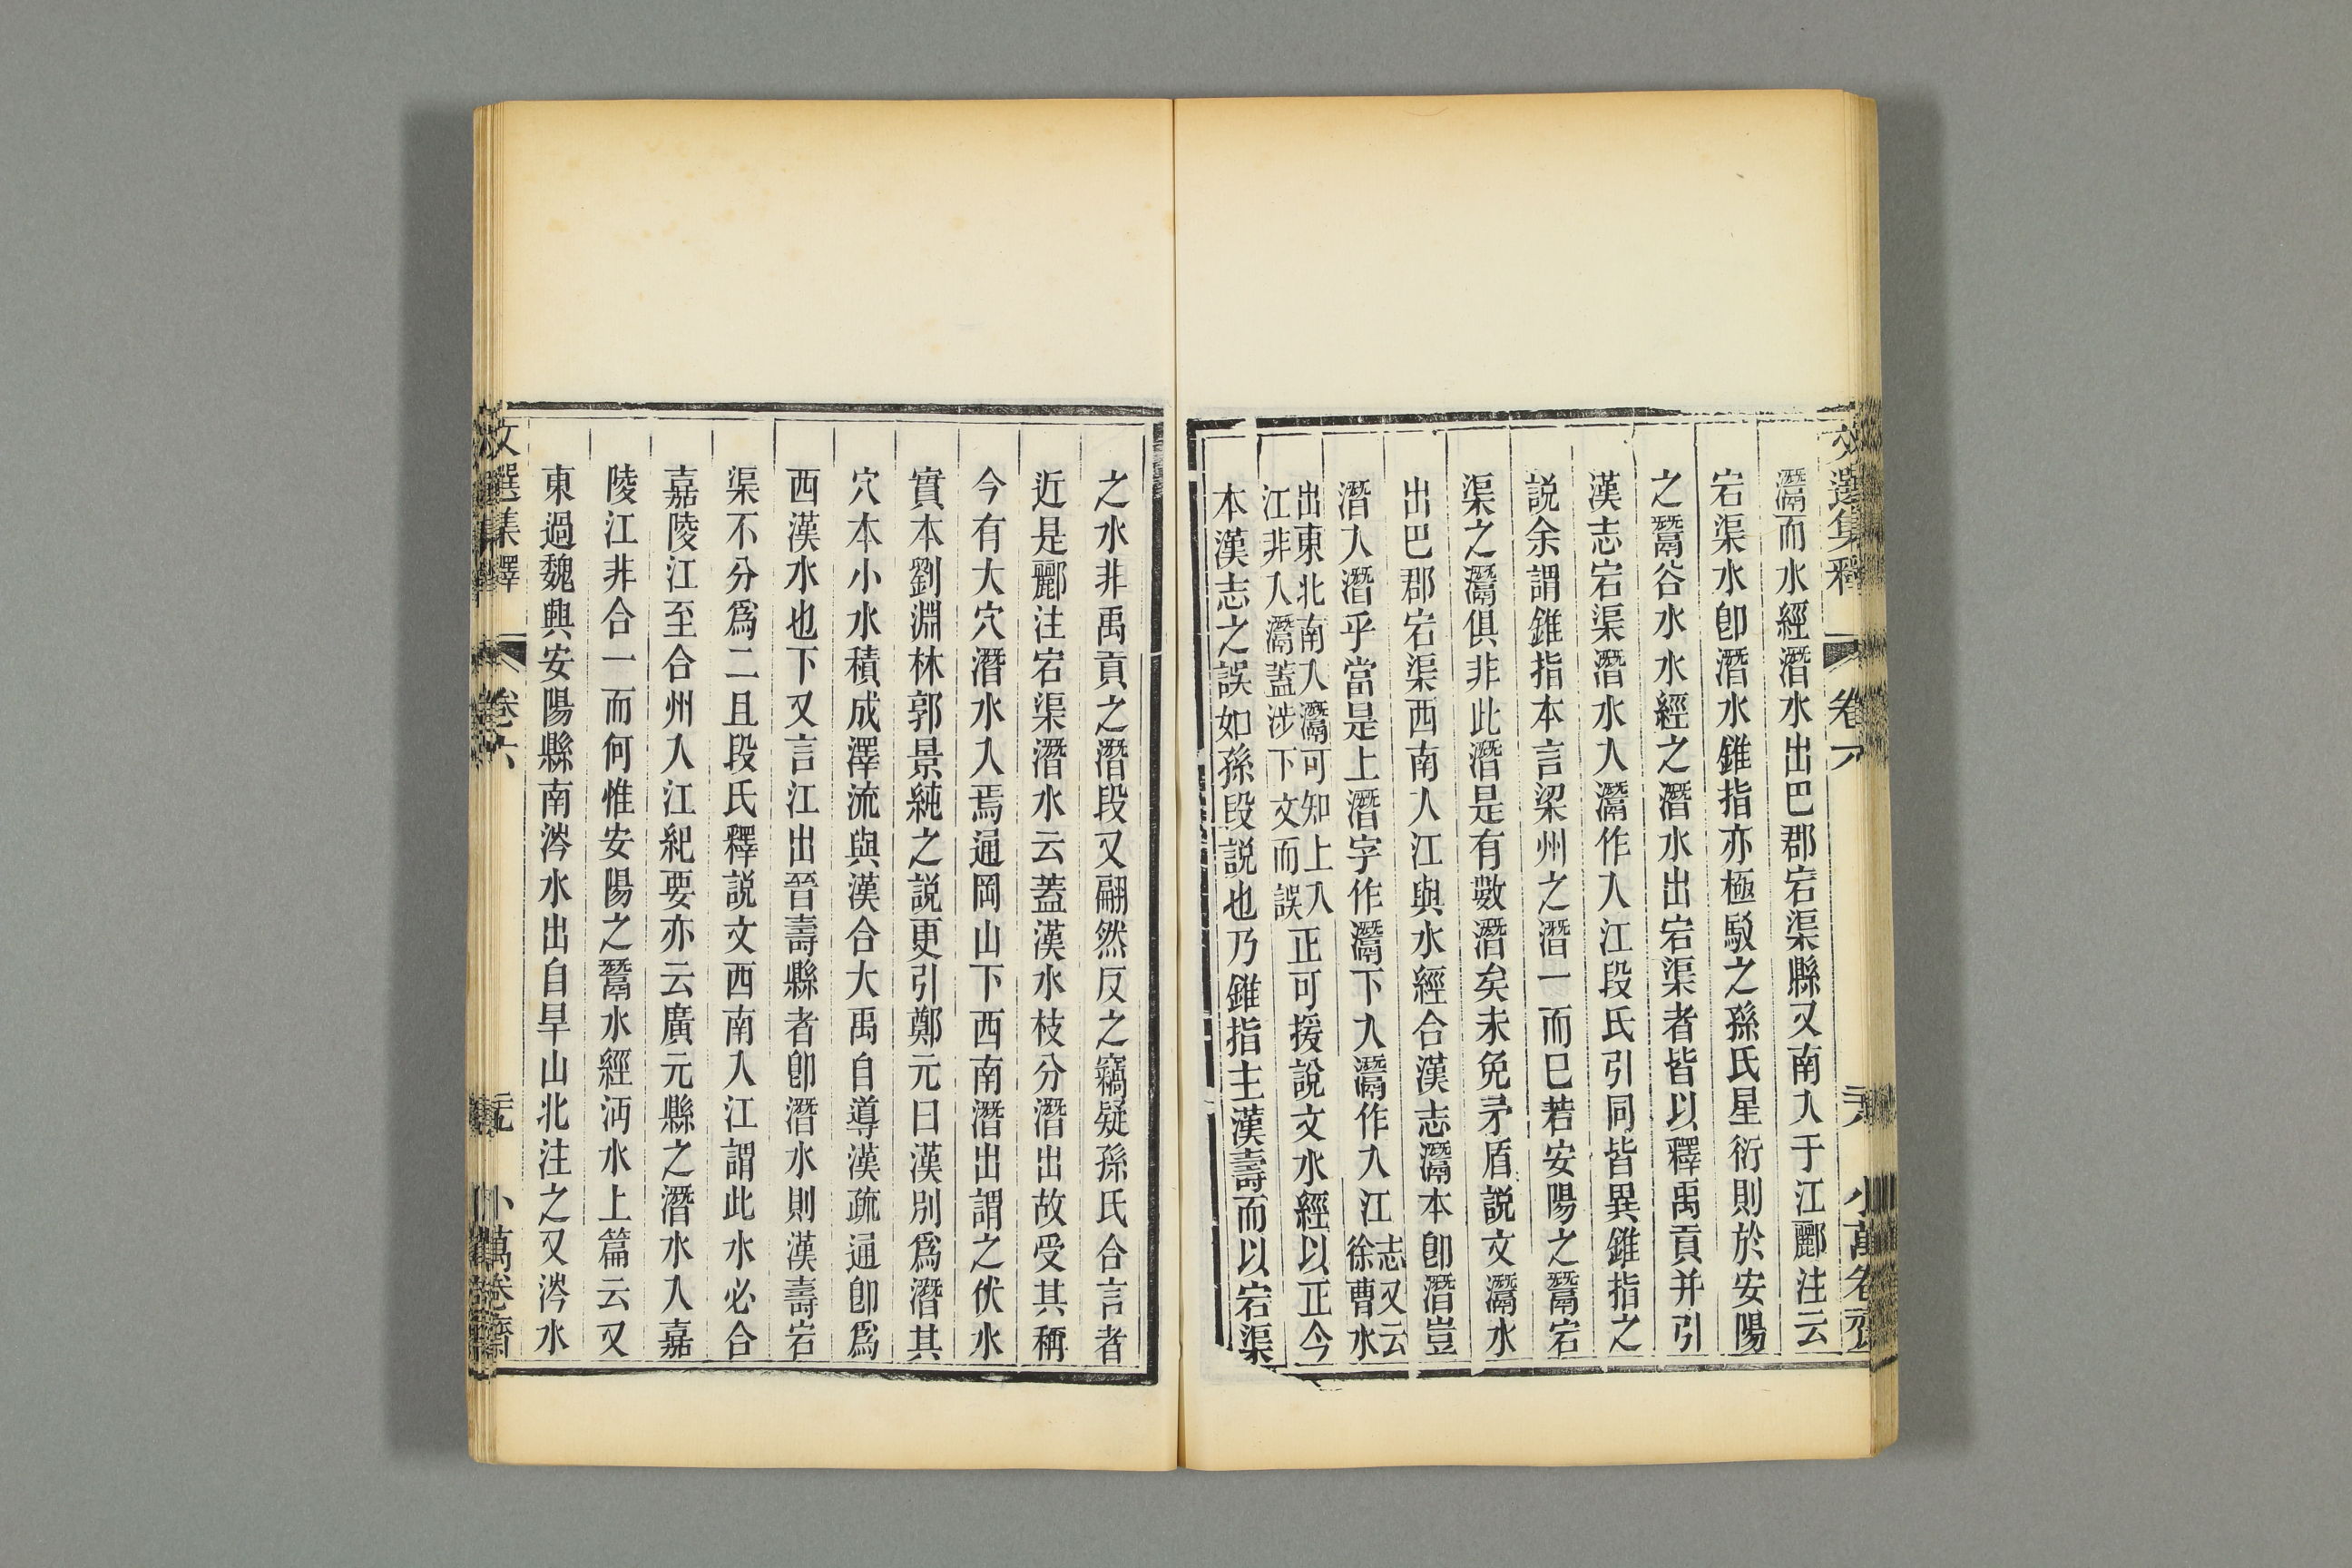 灊而水經潛水出巴郡宕渠縣又南入于江酈注云
宕渠水卽潛水錐指亦極駁之孫氏星衍則於安陽
之鬵谷水水經之潛水出宕渠者皆以釋禹貢并引
漢志宕渠潛水入灊作入江段氏引同皆異錐指之
説余謂錐指本言梁州之潛一而巳若安陽之鬵宕
渠之灊俱非此潛是有數潛矣未免矛盾説文灊水
出巴郡宕渠西南入江與水經合漢志灊本卽潛豈
潛入潛乎當是上潛字作灊下入灊作入江志又云徐曹水
出東北南入灊可知上入江非入灊蓋涉下文而誤正可援說文水經以正今
本漢志之誤如孫段説也乃錐指主漢壽而以宕渠
之水非禹貢之潛段又翩然反之竊疑孫氏合言者
近是酈注宕渠潛水云蓋漢水枝分潛出故受其稱
今有大穴潛水入焉通岡山下西南潛出謂之伏水
實本劉淵林郭景純之説更引鄭元曰漢別爲潛其
穴本小水積成澤流與漢合大禹自導漢疏通卽爲
西漢水也下又言江出晉壽縣者卽潛水則漢壽宕
渠不分爲二且段氏釋説文西南入江謂此水必合
嘉陵江至合州入江紀要亦云廣元縣之潛水入嘉
陵江非合一而何惟安陽之鬵水經沔水上篇云又
東過魏興安陽縣南涔水出自旱山北注之又涔水
文選集釋 卷六 元 小萬卷齋